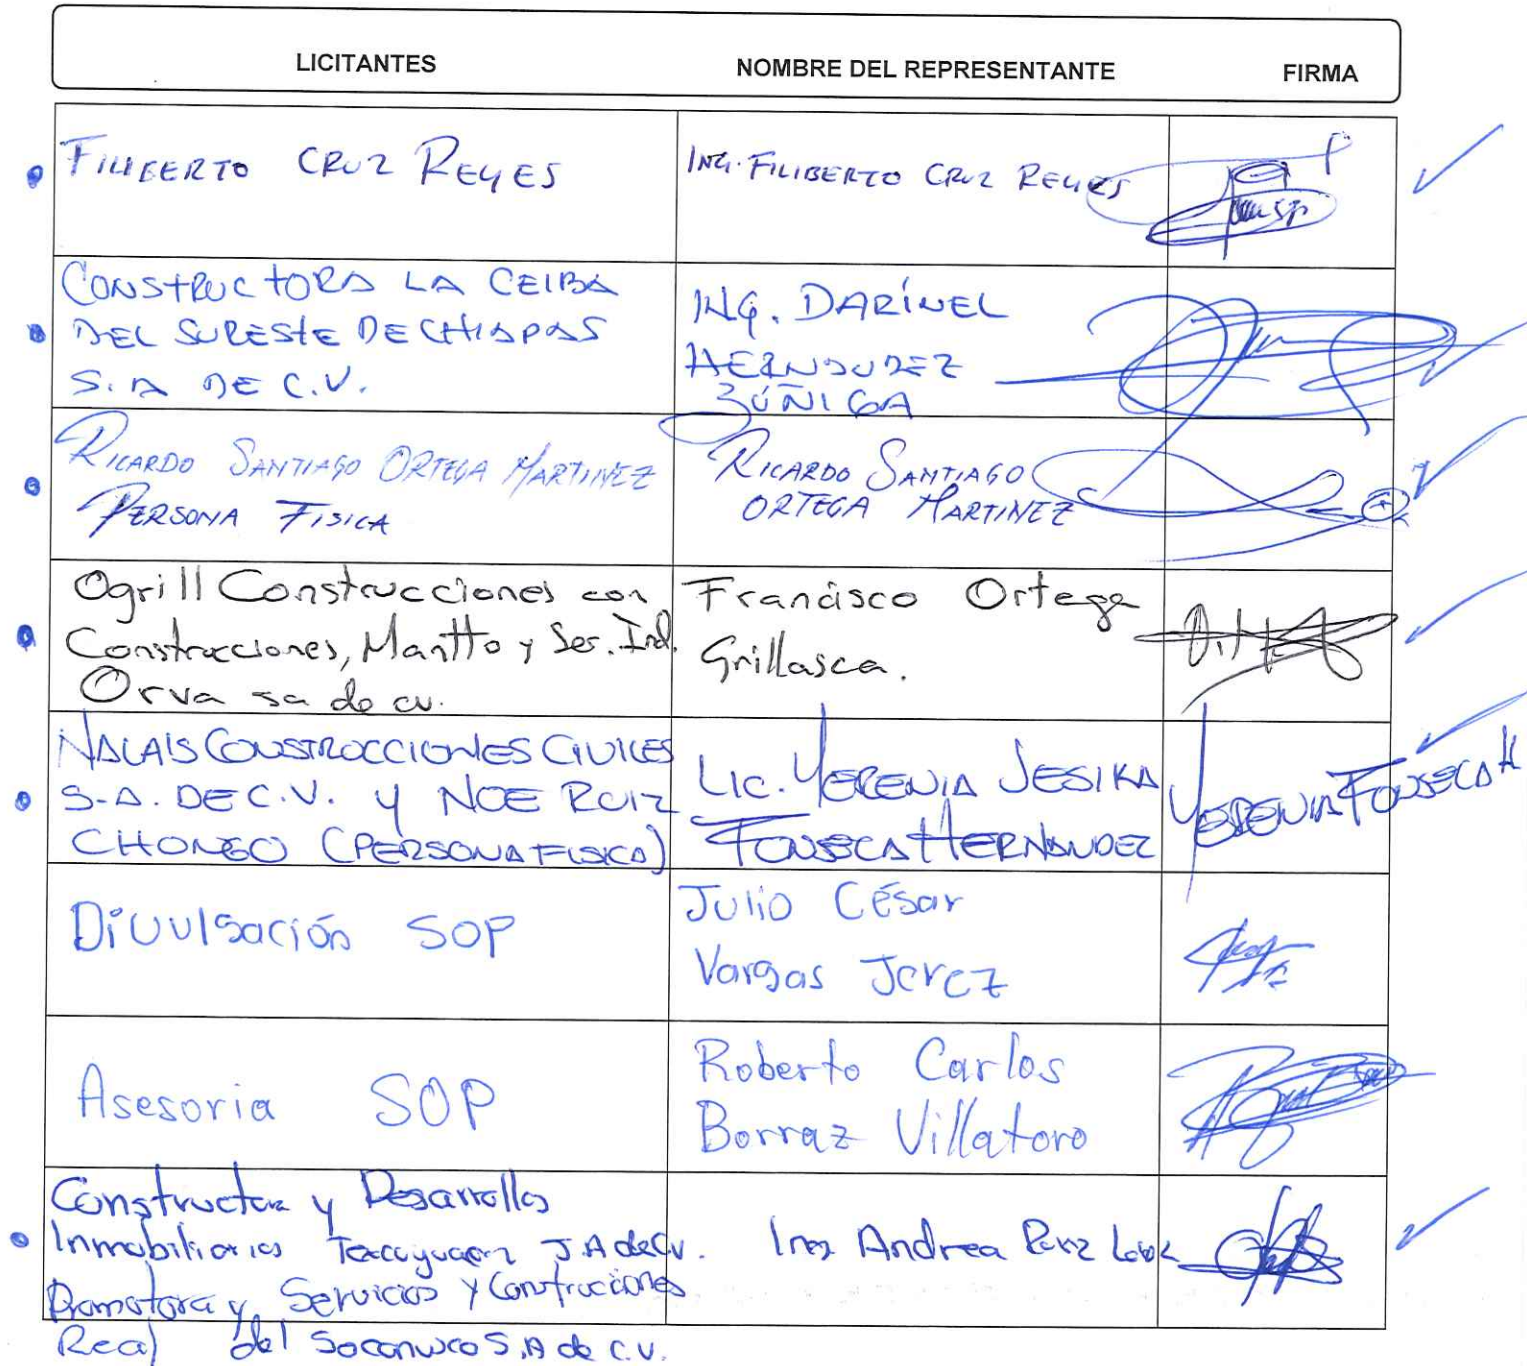 LICITANTES NOMBRE DEL REPRESENTANTE FIRMA
FILIBERTO CRUZ REYES
ING. FILIBERTO CRUZ REYES
CONSTRUCTORA LA CEIBA
DEL SURESTE DE CHIAPAS
S.A DE C.V.
ING. DARÍNEL
HERNÁNDEZ
ZÚÑIGA
RICARDO SANTIAGO ORTEGA MARTINEZ
PERSONA FISICA
RICARDO SANTIAGO
ORTEGA MARTINEZ
Ogrill Construcciones con
Construcciones, Mantto y Ser. Ind.
Orva sa de cv.
Francisco Ortega
Grillasca.
NALAIS CONSTRUCCIONES CIVILES
S.A. DE C.V. Y NOE RUIZ
CHONGO (PERSONA FISICA)
LIC. YERENIA JESIKA
FONSECA HERNANDEZ
YERENIA FONSECA H
Divulgación SOP
Julio César
Vargas Jerez
Asesoria SOP
Roberto Carlos
Borraz Villatoro
Constructora y Desarrollos
Inmobiliarios S.A de C.v.
Promotora y Servicios y Construcciones
Real del Soconusco S.A de C.V.
Andrea